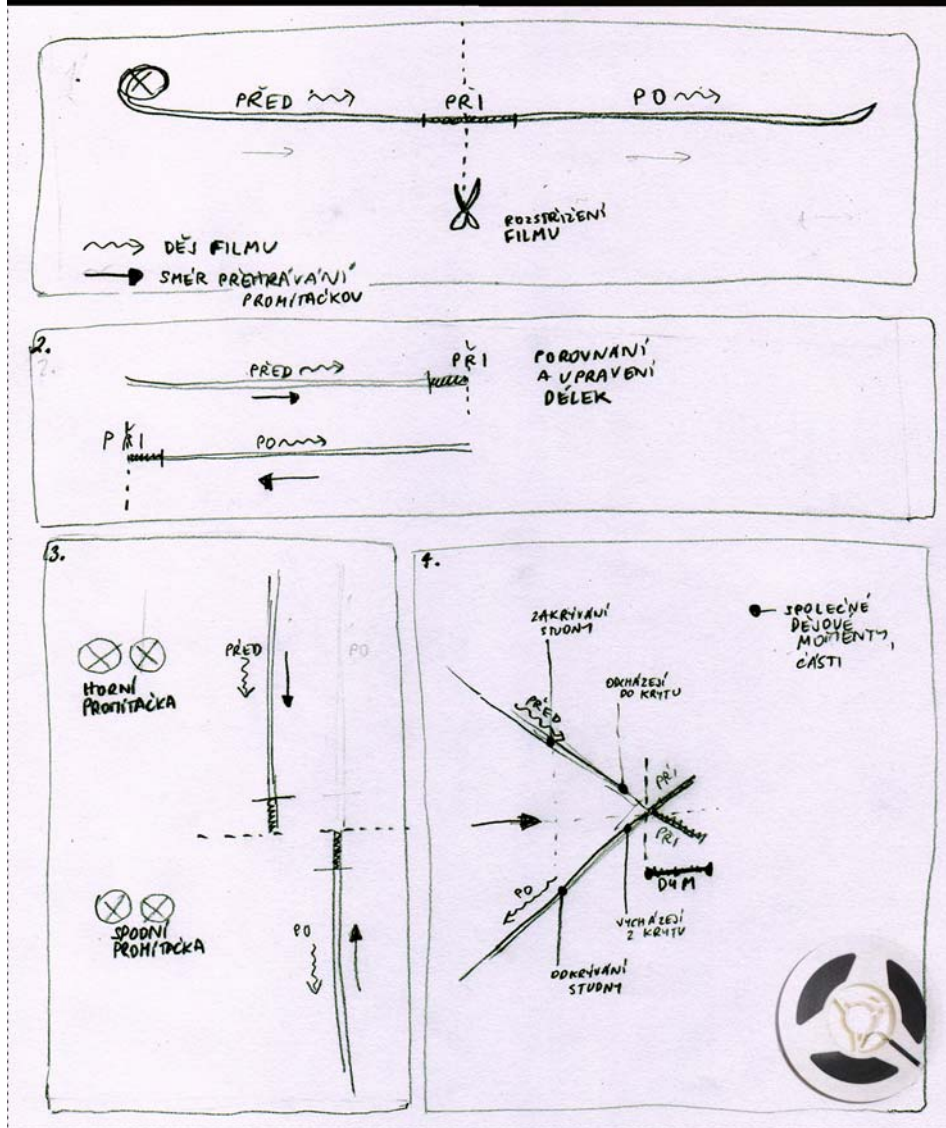 1.
PŘED PŘI PO
ROZSTŘIŽENÍ
FILMU
DĚJ FILMU
SMĚR PŘEHRÁVÁNÍ
PROMÍTAČKOU
2.
2.
PŘED PŘI
POROVNÁNÍ
A UPRAVENÍ
DÉLEK
PŘI PO
3.
HORNÍ
PROMÍTAČKA
PŘED
PO
SPODNÍ
PROMÍTAČKA
PO
4.
ZAKRÝVÁNÍ
STUDNY
SPOLEČNÉ
DĚJOVÉ
MOMENTY,
ČÁSTI
ODCHÁZEJÍ
DO KRYTU
PŘED
PŘI
PŘI
DÝM
PO
VYCHÁZEJÍ
Z KRYTU
ODKRÝVÁNÍ
STUDNY